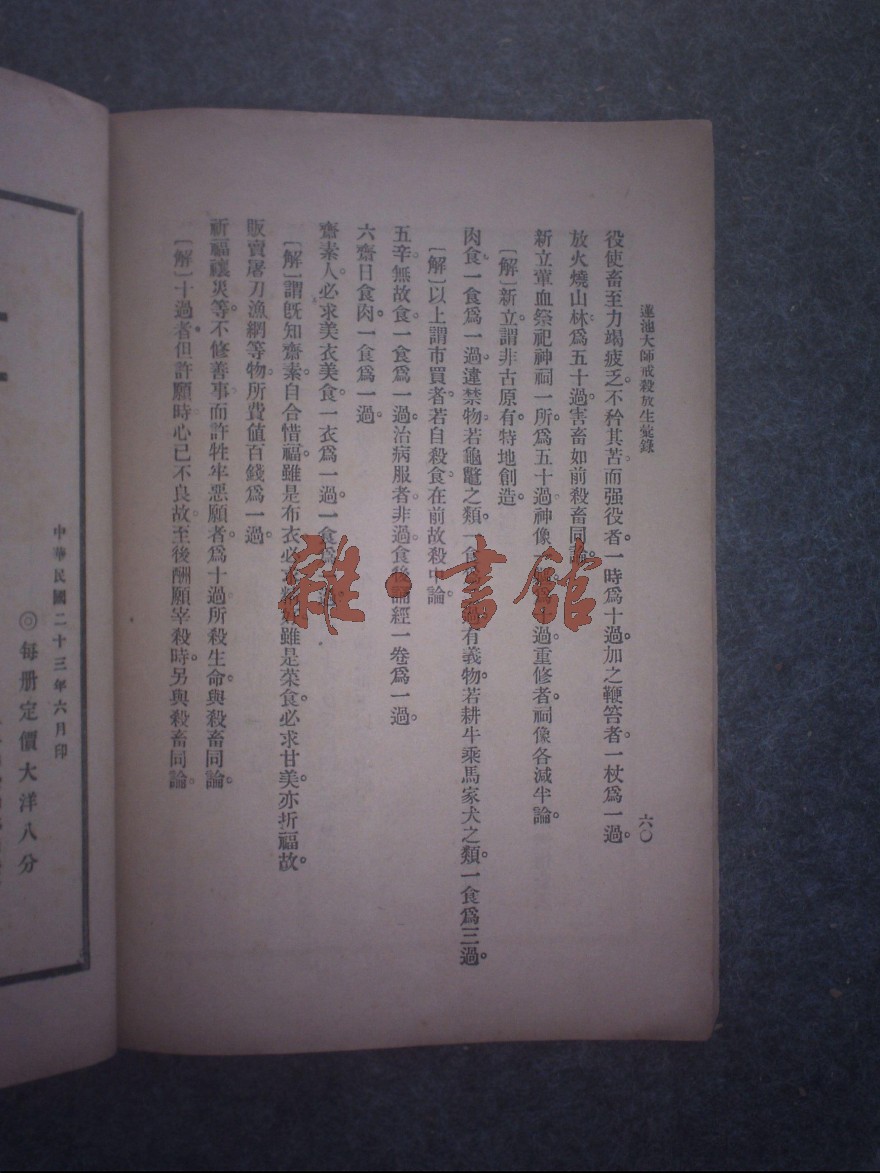 蓮池大師戒殺放生彙錄
六〇
役使畜至力竭疲乏。不矜其苦而强役者。一時爲十過。加之鞭笞者一杖爲一過。
放火燒山林爲五十過。害畜如前殺畜同論。
新立葷血祭祀神祠一所。爲五十過。神像一 十過。重修者。祠像各減半論。
〔解〕新立謂非古原有。特地創造。
肉食。一食爲一過。違禁物。若龜鼈之類。一食 過。有義物。若耕牛乘馬家犬之類。一食爲三過。
〔解〕以上謂市買者。若自殺食。在前故殺中論。
五辛無故食。一食爲一過。治病服者非過。食後誦經一卷爲一過。
六齋日食肉。一食爲一過。
齋素人。必求美衣美食。一衣爲一過。一食爲 過。
〔解〕謂旣知齋素。自合惜福。雖是布衣。必求 雖是菜食。必求甘美。亦折福故。
販賣屠刀漁網等物。所費値百錢爲一過。
祈福禳災等。不修善事而許牲牢惡願者。爲十過。所殺生命。與殺畜同論。
〔解〕十過者。但許願時心已不良故。至後酬願宰殺時。另與殺畜同論。
中華民國二十三年六月印
◎每册定價大洋八分
雜·書館